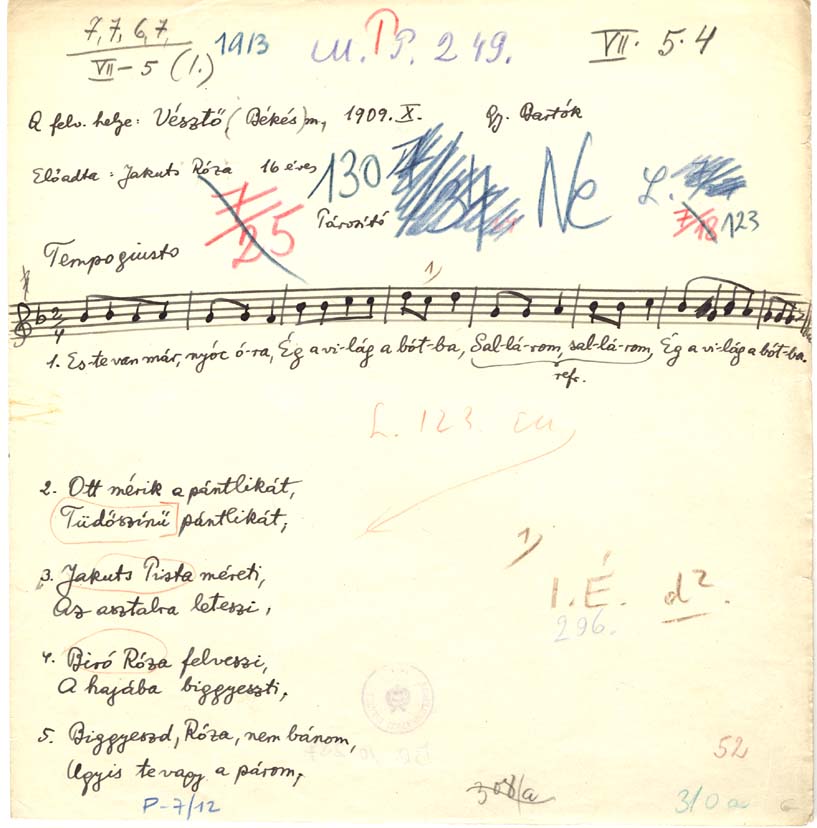 7, 7, 6, 7,
VII-5 (1.)
1913
M. P. 249.
VII. 5.4
A felv. helye: Vésztő (Békés) m, 1909. X. Gy. Bartók
Előadta: Jakuts Róza 16 éves
130
Ne
L.
25
Párosító
123
Tempo giusto
1)
2
4
1. Es-te van már, nyóc ó-ra, Ég a vi-lág a bót-ba, Sal-lá-rom, sal-lá-rom, Ég a vi-lág a bót-ba.
refr.
L. 123
2. Ott mérik a pántlikát,
Tüdőszínű pántlikát,
3. Jakuts Pista méreti,
Az asztalra leteszi,
4. Biró Róza felveszi,
A hajába biggyeszti,
1)
I. É. d2.
296.
5. Biggyeszd, Róza, nem bánom,
Ugyis te vagy a párom,
52
P-7/12
308/a
310 a